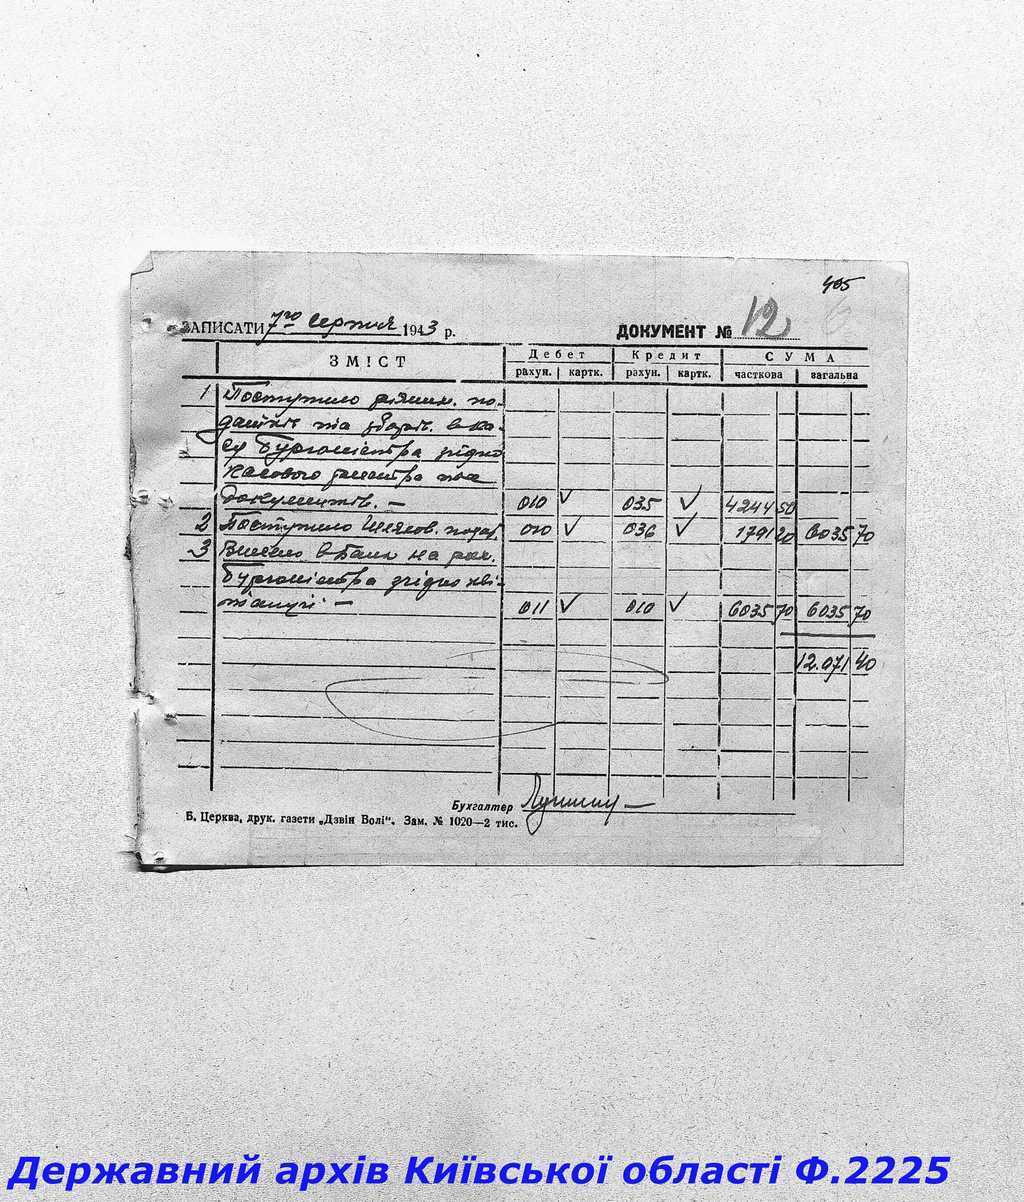 405
ЗАПИСАТИ 7го серпня 1943 р. ДОКУМЕНТ № 12
ЗМІСТ Дебет Кредит СУМА
рахун. картк. рахун. картк. часткова загальна
1 Поступило по-
датків та зборів. в ка-
су Бургомістра згідно
касового
документів. — 010 ✓ 035 ✓ 4244 50
2 Поступило 010 ✓ 036 ✓ 1791 20 6035 70
3 Внесено в Банк на рах.
Бургомістра згідно кві-
танції — 011 ✓ 010 ✓ 6035 70 6035 70
12.071 40
Бухгалтер
Б. Церква, друк. газети „Дзвін Волі“. Зам. № 1020—2 тис.
Державний архів Київської області Ф.2225